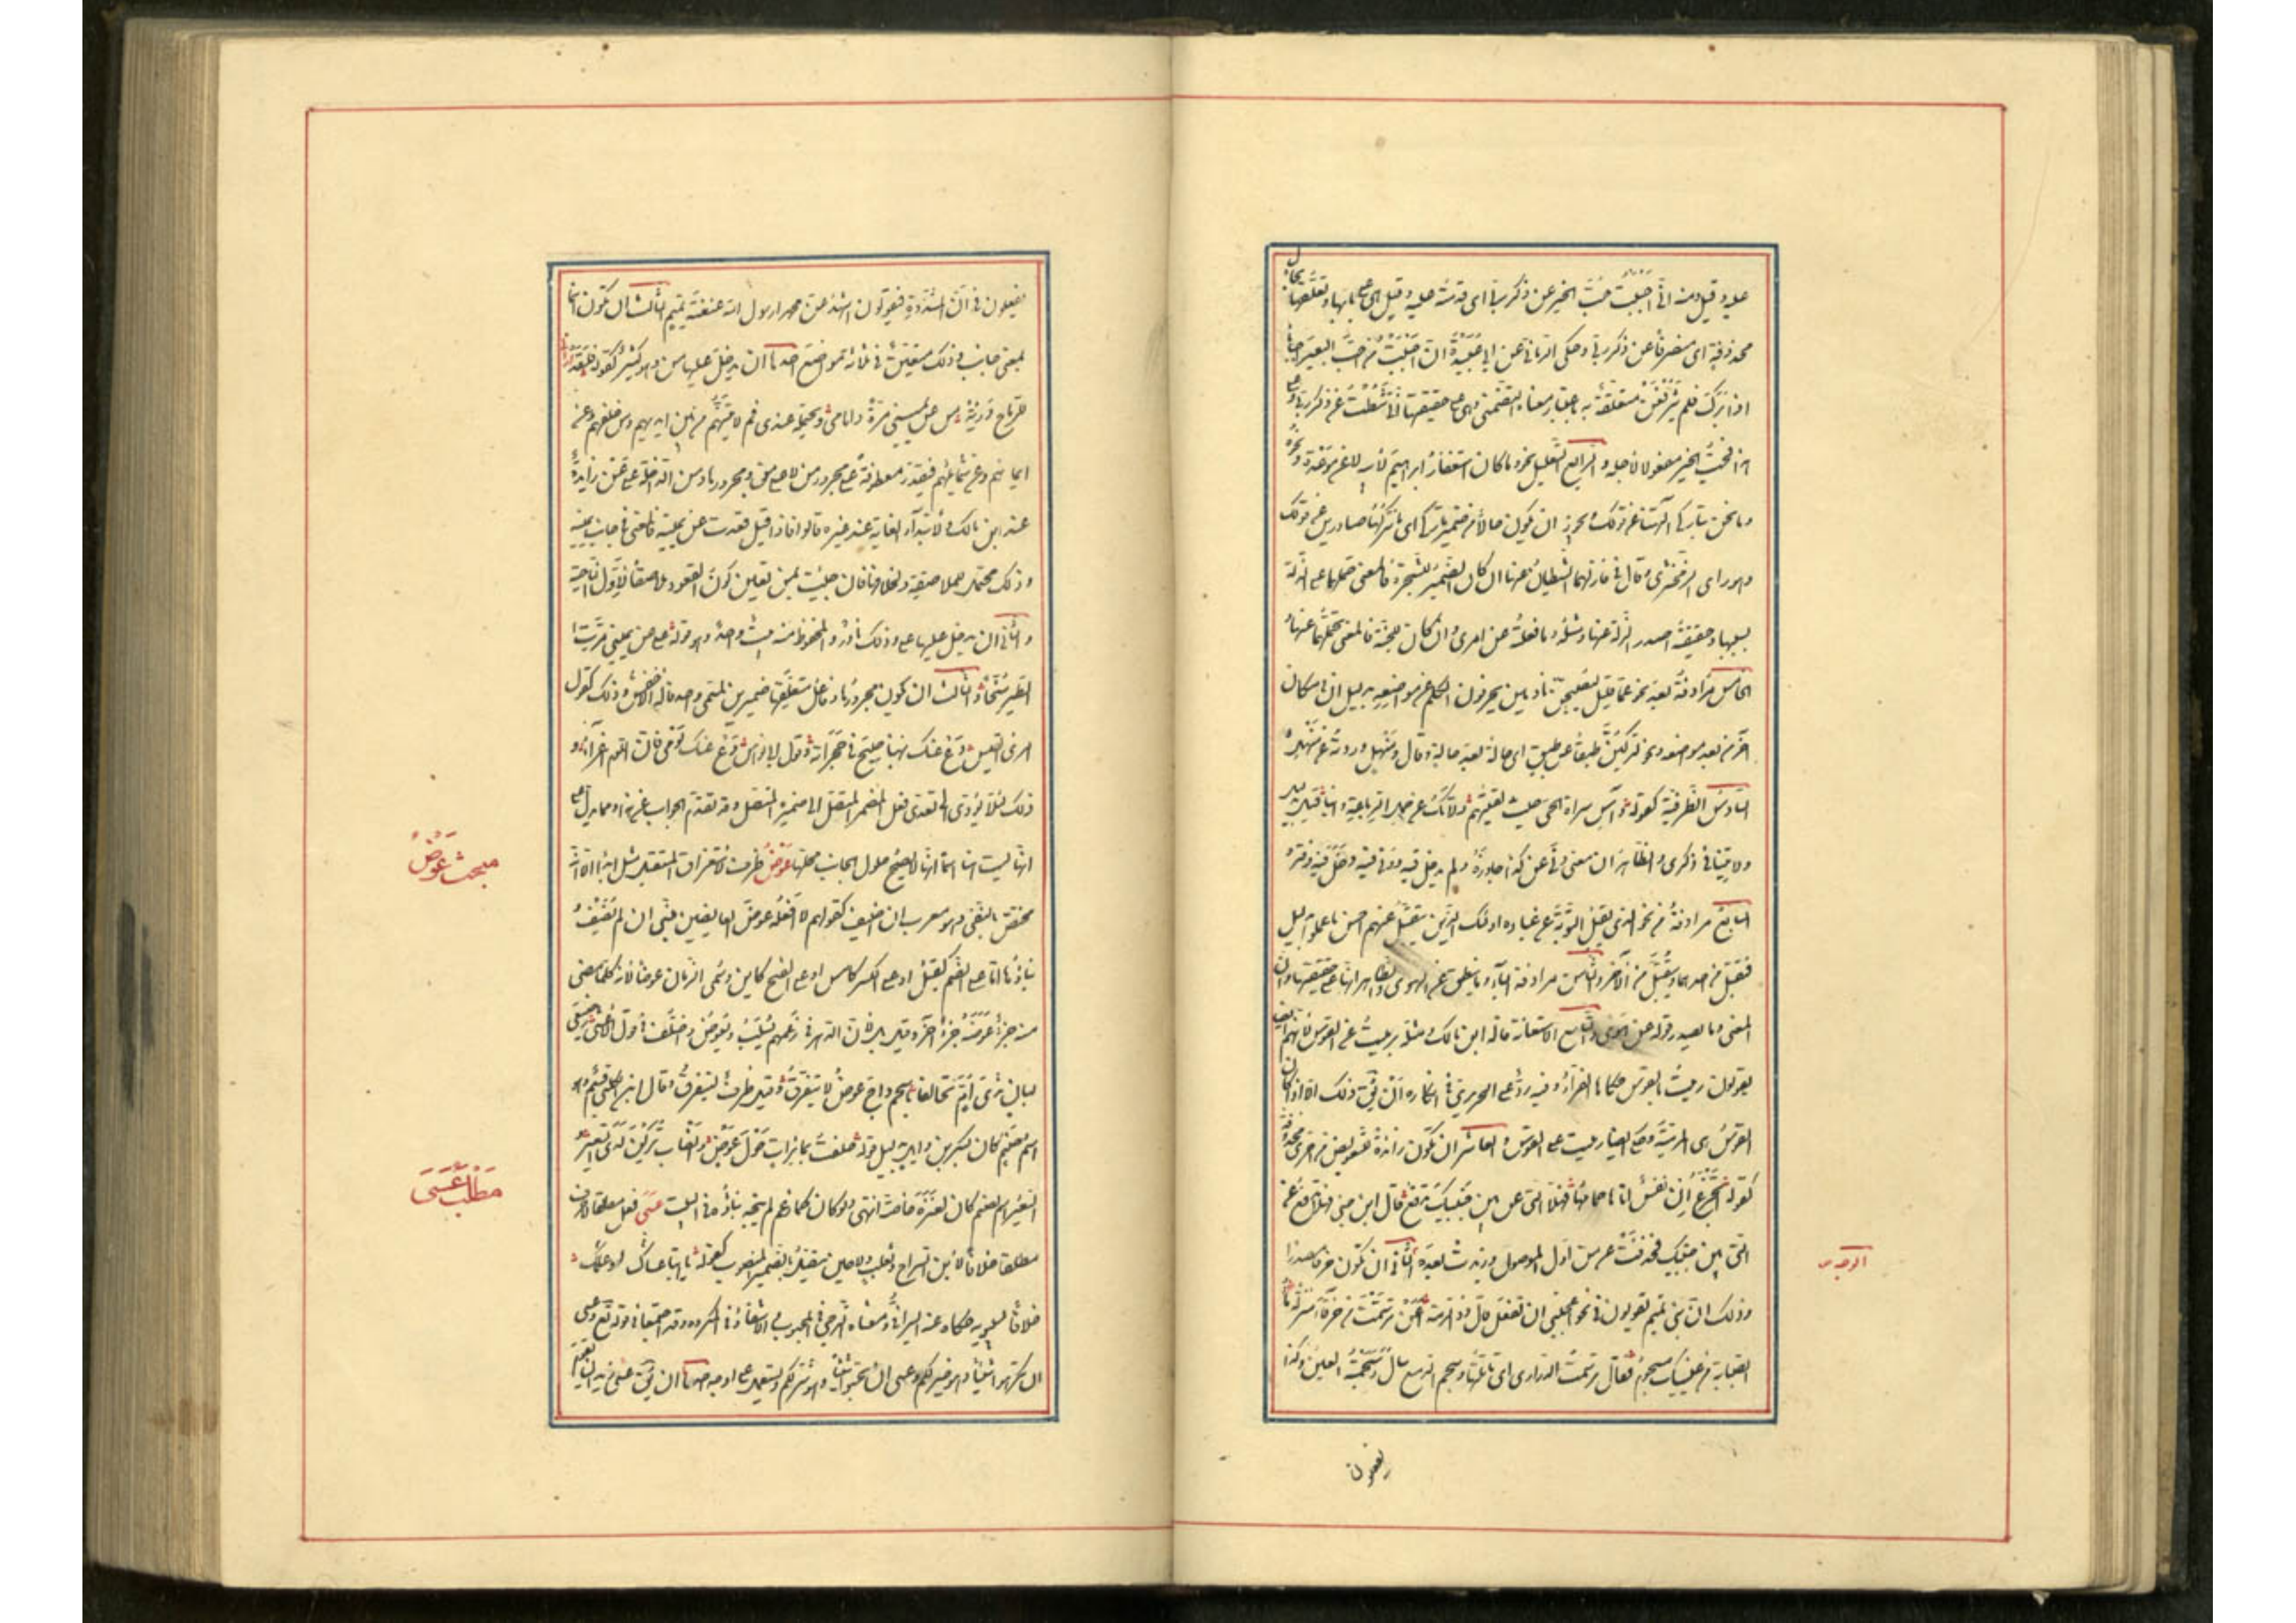 عليه وقيل ومنه انّى احببت حبّ الخير عن ذكر ربى اى قدمته عليه وقيل هى على بابها وتعلّقها بحال
محذوفة اى منصرفا عن ذكر ربى وحكى الرمانى عن ابى عبيدة ان احببت من احبّ البعير احبابا
اذا برك فلم يثر فعن متعلقة به باعتبار معناه التضمنى وهى على حقيقتها اى تثبّطت عن ذكر ربى وعلى
هذا فحبّ الخير مفعول لاجله والرابع التعليل نحو وما كان استغفار ابراهيم لابيه الا عن موعدة ونحو
وما نحن بتاركى آلهتنا عن قولك ويجوز ان يكون حالا من ضمير تاركى اى ما نتركها صادرين عن قولك
وهو راى الزمخشرى وقال فى فازلهما الشيطان عنها ان كان الضمير للشجرة فالمعنى حملهما على الزلة
بسببها وحقيقته اصدر الزلة عنها ومثله وما فعلته عن امرى وان كان للجنة فالمعنى نحّاهما عنها
الخامس مرادفة بعد نحو عما قليل ليصبحن نادمين يحرفون الكلم عن مواضعه بدليل ان فى مكان
آخر من بعد مواضعه ونحو لتركبنّ طبقا عن طبق اى حالة بعد حالة وقال ومنهل وردته عن منهل
السادس الظرفية كقوله وآس سراة الحى حيث لقيتهم ولا تك عن حمل الرباعة وانيا قيل بدليل
ولا تنيا فى ذكرى والظاهر ان معنى ونى عن كذا جاوزه ولم يدخل فيه وونى فيه دخل فيه وفتر
السابع مرادفة من نحو الذى يقبل التوبة عن عباده اولئك الذين يتقبل عنهم احسن ما عملوا بدليل
فتقبل من احدهما ولم يتقبل من الآخر والثامن مرادفة الباء وما ينطق عن الهوى والظاهر انها على حقيقتها وان
المعنى وما يصدر قوله عن الهوى والتاسع الاستعانة قاله ابن مالك ومثله برميت عن القوس لانهم ايضا
يقولون رميت بالقوس حكاهما الفرّاء وفيه ردّ على الحريرى فى انكاره ان يق ذلك الا اذا كان
القوس هى المرميّة وحكى ايضا رميت على القوس والعاشر ان تكون زائدة للتعويض من اخرى محذوفة
كقوله اتجزع ان نفس اتاها حمامها فهلّا التى عن بين جنبيك تدفع قال ابن جنى اراد فهلا تدفع عن
التى بين جنبيك فحذفت عن من اول الموصول وزيدت بعده الثانى ان تكون حرفا مصدريا
وذلك انّ بنى تميم يقولون فى نحو اعجبنى ان تفعل عن تفعل قال ذو الرمة اعن ترسّمت من خرقاء منزلة ماء
الصبابة من عينيك مسجوم يقال ترسمت الدار اى تاملتها وسجم الدمع سال وسجمته العين وكذا
الوجه
يفعلون
يفعلون فى انّ المشدّدة فيقولون اشهد عنّ محمدا رسول الله عنعنة تميم الثالث ان تكون اسما
بمعنى جانب وذلك متعيّن فى ثلاثة مواضع احدها ان يدخل عليها من وهو كثير كقوله فلقد ارانى
للرّماح دريئة من عن يمينى مرّة وامامى ويحتمله عندى ثم لآتينهم من بين ايديهم ومن خلفهم وعن
ايمانهم وعن شمائلهم فيقدّر معطوفة على مجرور من لا على من ومجرورها ومن الداخلة على عن زايدة
عند ابن مالك ولابتداء الغاية عند غيره قالوا فاذا قيل قعدت عن يمينه فالمعنى فى جانب يمينه
وذلك محتمل للملاصقة ولخلافها فان جئت بمن تعيّن كون القعود ملاصقا لاوّل الناحية
والثانى ان يدخل عليها على وذلك نادر والمحفوظ منه بيت واحد وهو قوله على عن يمينى مرّت
الطير سنّحا والثالث ان يكون مجرورها وفاعل متعلّقها ضميرين لمسمى واحد قاله الاخفش وذلك كقول
امرئ القيس ودع عنك نهبا صيح فى حجراته وقول ابى نواس دع عنك لومى فان اللوم اغراء و
ذلك لئلا يؤدى الى تعدى فعل المضمر المتصل الى ضميره المتصل وقد تقدم الجواب عن هذا ومما يدل على
انها ليست هنا اسما انها لا يصح حلول الجانب محلها عوض ظرف لاستغراق المستقبل مثل ابدا الا انه
مختص بالنفى وهو معرب ان اضيف كقولهم لا افعله عوض العايضين مبنى ان لم يضف و
بناؤه اما على الضم كقبل او على الكسر كامس او على الفتح كاين وسمى الزمان عوضا لانه كلما مضى
منه جزء عوّضه جزء آخر وقيل بل لان الدهر فى زعمهم يسلب ويعوّض واختلف فى قول الاعشى رضيعى
لبان ثدى امّ تحالفا باسحم داج عوض لا نتفرّق فقيل ظرف لنتفرق وقال ابن الكلبى قسم وهو
اسم صنم كان لبكر بن وايل بدليل قوله حلفت بمايرات حول عوض وانصاب تركن لدى السعير
السعير اسم لصنم كان لعنزة خاصة انتهى ولو كان كما زعم لم يتجه بناؤه فى البيت عسى فعل مطلقا لا حرف
مطلقا خلافا لابن السراج وثعلب ولا حين يتصل بالضمير المنصوب كقوله يا ابتا عساك او علّك
خلافا لسيبويه حكاه عنه السيرافى ومعناه الترجى فى المحبوب والاشفاق فى المكروه وقد اجتمعا فى قوله تع وعسى
ان تكرهوا شيئا وهو خير لكم وعسى ان تحبوا شيئا وهو شر لكم ويستعمل على اوجه احدها ان يق عسى زيد ان يقوم
مبحث عوض
مطلب عسى